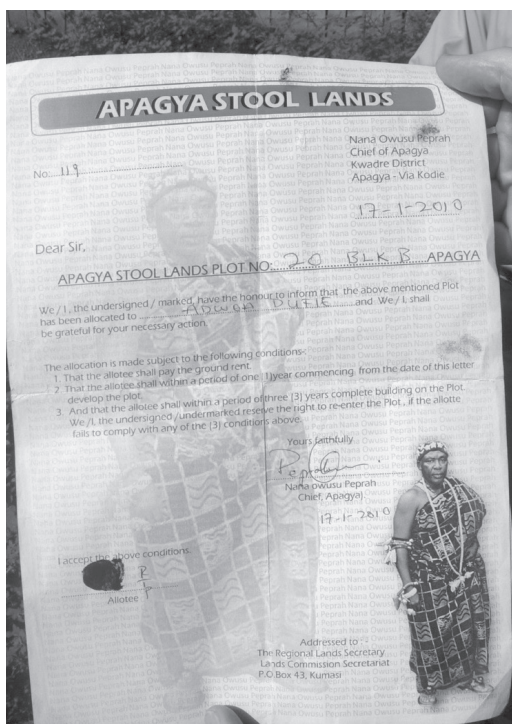 APAGYA STOOL LANDS
Nana Owusu Peprah
Chief of Apagya
Kwadre District
Apagya - Via Kodie
No: 119
17-1-2010
Dear Sir,
APAGYA STOOL LANDS PLOT NO: 20 BLK B APAGYA
We / I, the undersigned / marked, have the honour to inform that the above mentioned Plot
has been allocated to ADWOA DUFIE and We / I, shall
be grateful for your necessary action.
The allocation is made subject to the following conditions-:
1. That the allotee shall pay the ground rent.
2. That the allotee shall within a period of one [1]year commencing from the date of this letter
develop the plot.
3. And that the allotee shall within a period of three [3] years complete building on the Plot.
We /I, the undersigned /undermarked reserve the right to re-enter the Plot , if the allotte
fails to comply with any of the [3] conditions above.
Yours faithfully
Nana owusu Peprah
Chief, Apagya]
17-1-2010
I accept the above conditions.
R T P
Allotee
Addressed to : -
The Regional Lands Secretary
Lands Commission Secretariat
P.O.Box 43, Kumasi